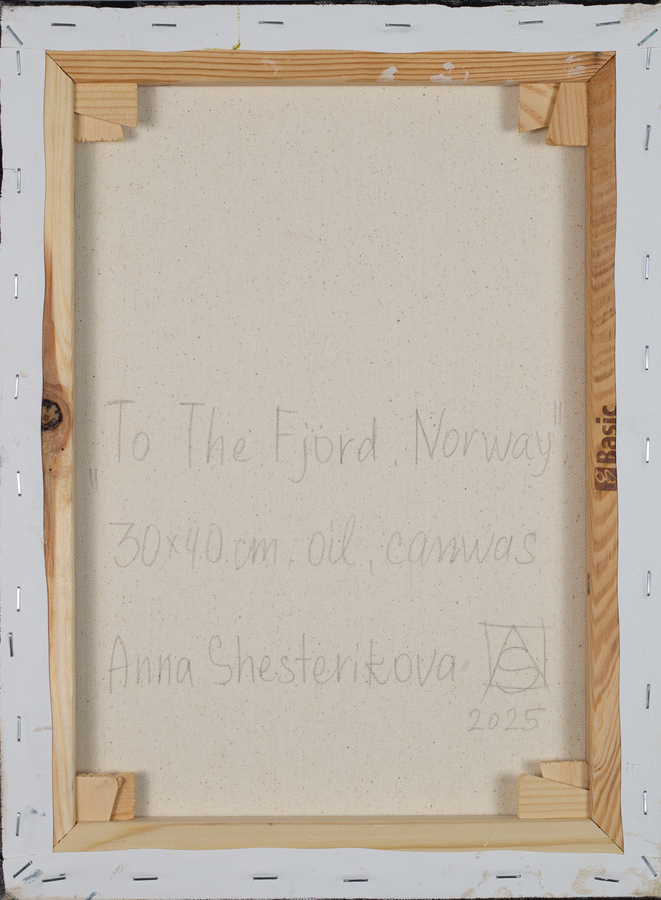 "To The Fjord, Norway",
30×40 cm, oil, canvas
Anna Shesterikova
2025
Basic